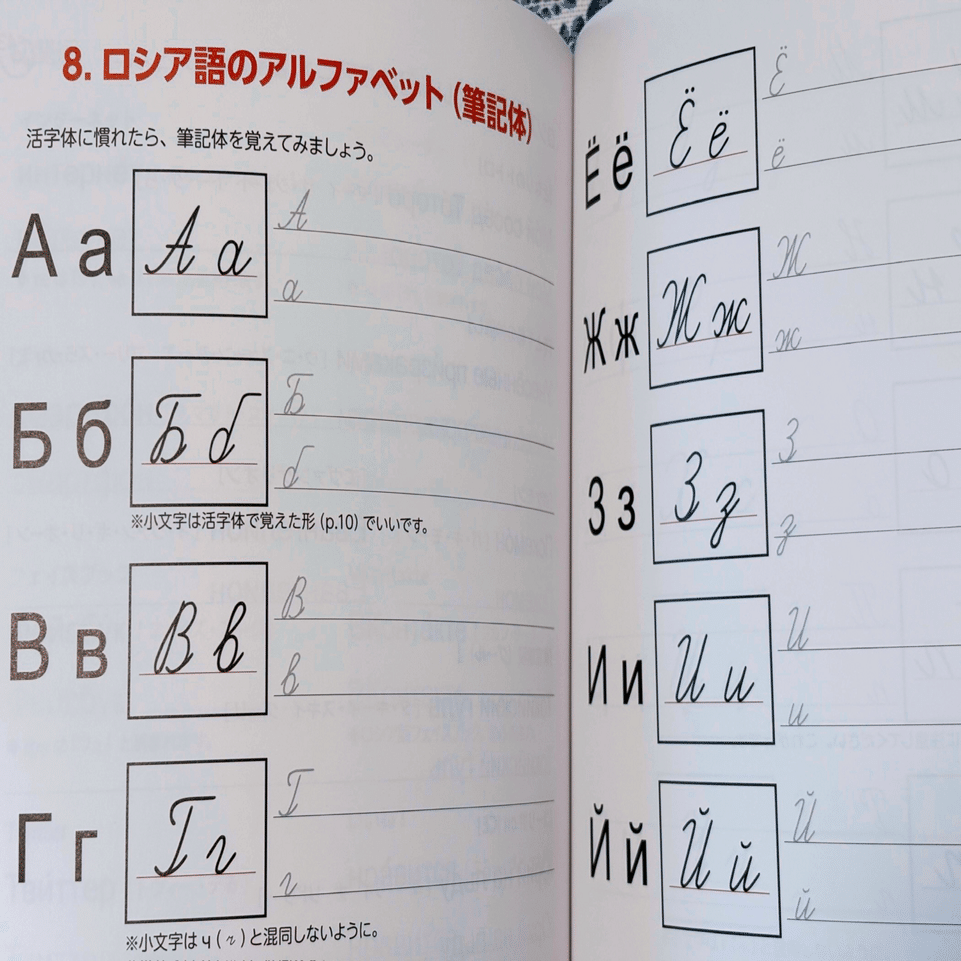 8. ロシア語のアルファベット (筆記体)
活字体に慣れたら、筆記体を覚えてみましょう。
А а А а А
а
Б б Б б Б
б
※小文字は活字体で覚えた形 (p.10) でいいです。
В в В в В
в
Г г Г г Г
г
※小文字は ч (ч) と混同しないように。
Ё ё Ё ё Ё
ё
Ж ж Ж ж Ж
ж
З з З з З
з
И и И и И
и
Й й Й й Й
й